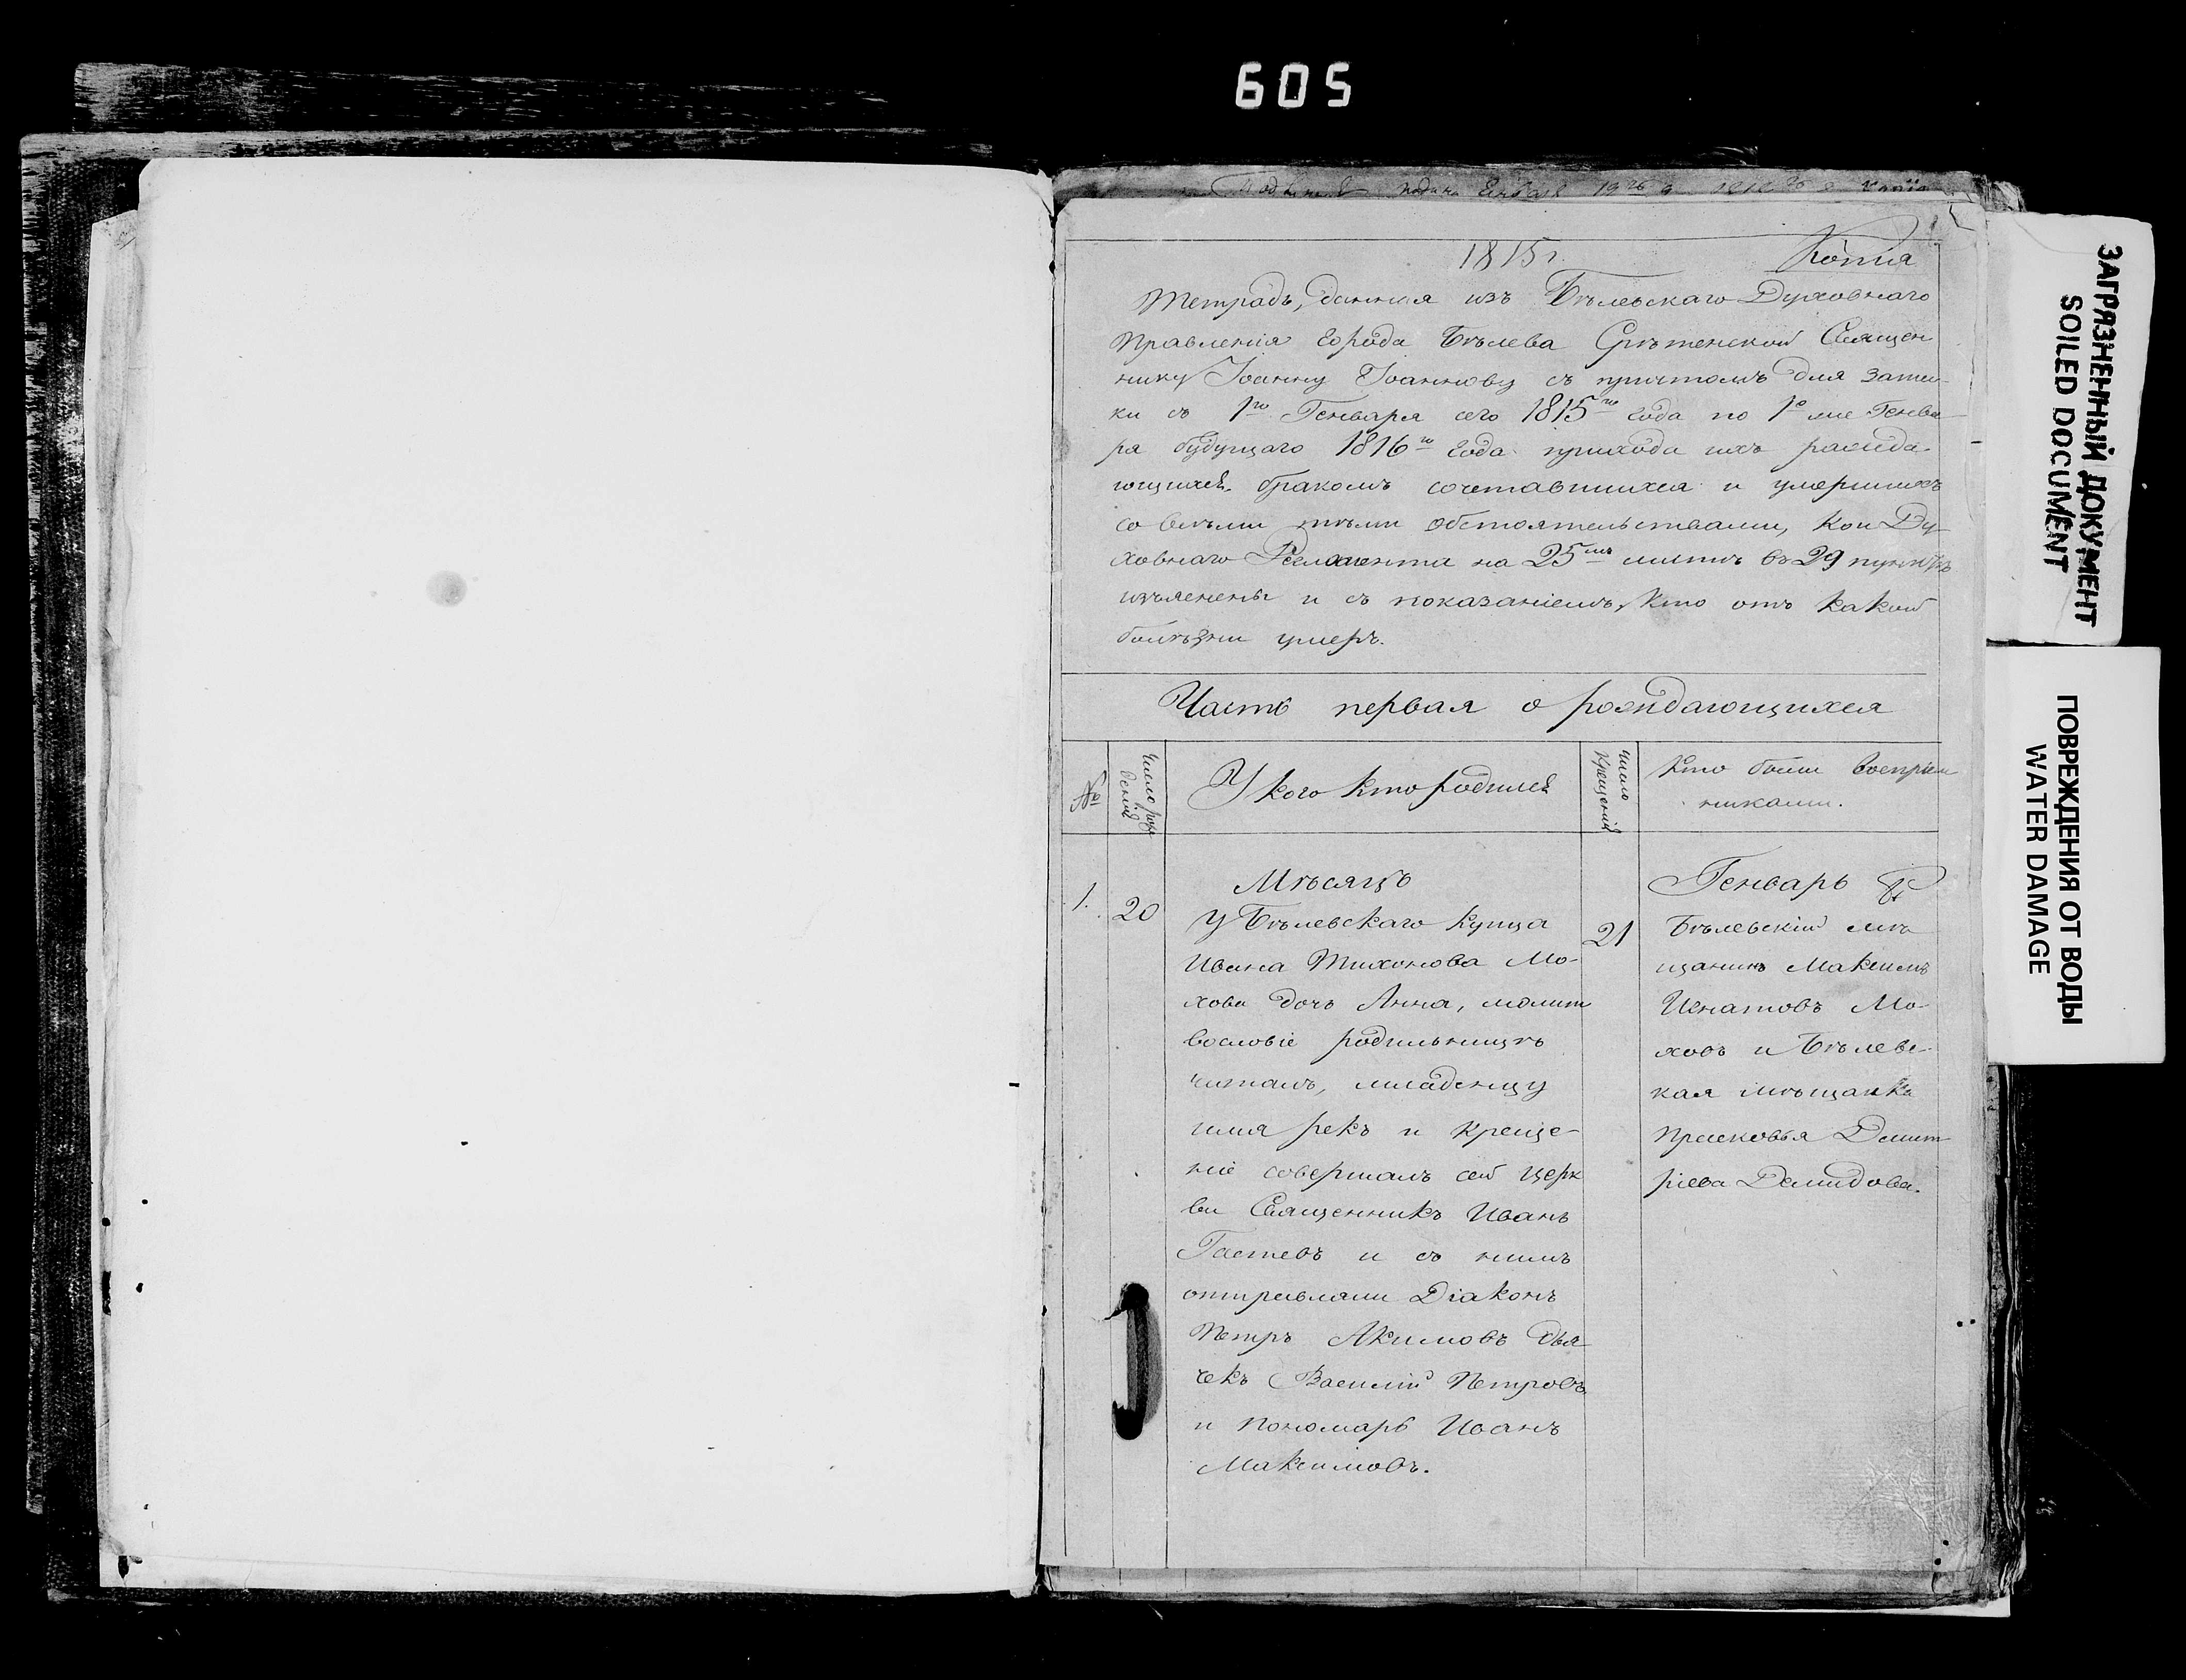 605
1815 г. Копиꙗ
Тетрадь, данная изъ Бѣлевскаго Духовнаго
Правленія города Бѣлева Срѣтенской Священ
нику Іоанну Іоаннову съ причтомъ для запис-
ки съ 1го Генваря сего 1815го года по 1е Генва
ря будущаго 1816го года прихода ихъ ражда-
ющихся бракомъ сочетавшихся и умершихъ
со всѣми тѣми обстоятельствами, кои Ду-
ховнаго Регламента на 25мъ листѣ въ 29 пунктѣ
изъяснены и съ показаніемъ, кто отъ какой
болѣзни умеръ.
Часть первая о рождающихся
№
Число рож
денія
У кого кто родился
Число
крещенія
Кто были воспріем
никами.
Мѣсяцъ Генварь
1. 20 21
У Бѣлевскаго купца
Ивана Тихонова Мо-
хова дочь Анна, молит
вословіе родильницѣ
читалъ, младенцу
имя рекъ и креще-
ніе совершалъ сей церк
ви Священникъ Иванъ
Гастевъ и съ нимъ
отправляли Діаконъ
Петръ Акимовъ дья
чекъ Василій Петровъ
и Пономарь Иванъ
Максимовъ.
Бѣлевскій мѣ
щанинъ Максимъ
Игнатовъ Мо-
ховъ и Бѣлевс-
кая мѣщанка
Прасковья Дмит
ріева Демидова.
ЗАГРЯЗНЕННЫЙ ДОКУМЕНТ
SOILED DOCUMENT
ПОВРЕЖДЕНИЯ ОТ ВОДЫ
WATER DAMAGE